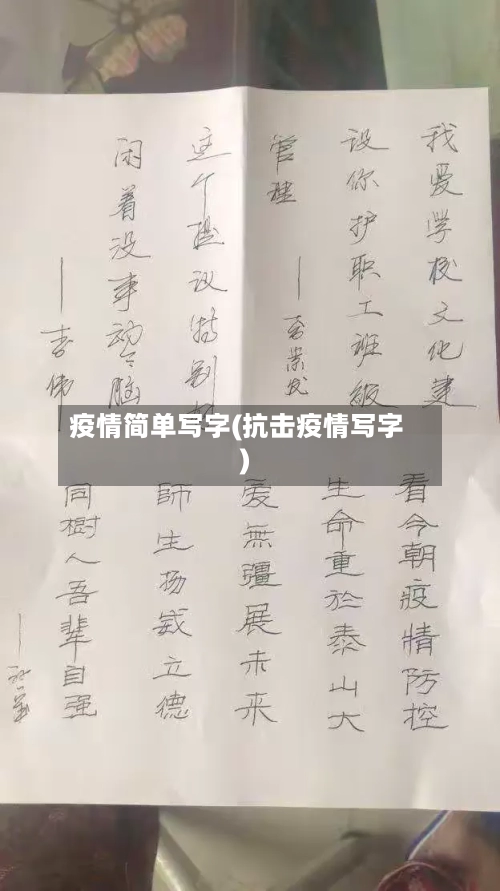 我爱学校文化建
设你护职工班級
管理
这个提议特别
闲着没事动今脑
疫情简单写字(抗击疫情写字
)
看今朝疫情防控
生命重於泰山大
爱無彊展未来
師生扬威立德
同樹人吾輩自强